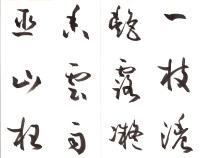 一枝濃
艷露凝
香雲雨
巫山枉